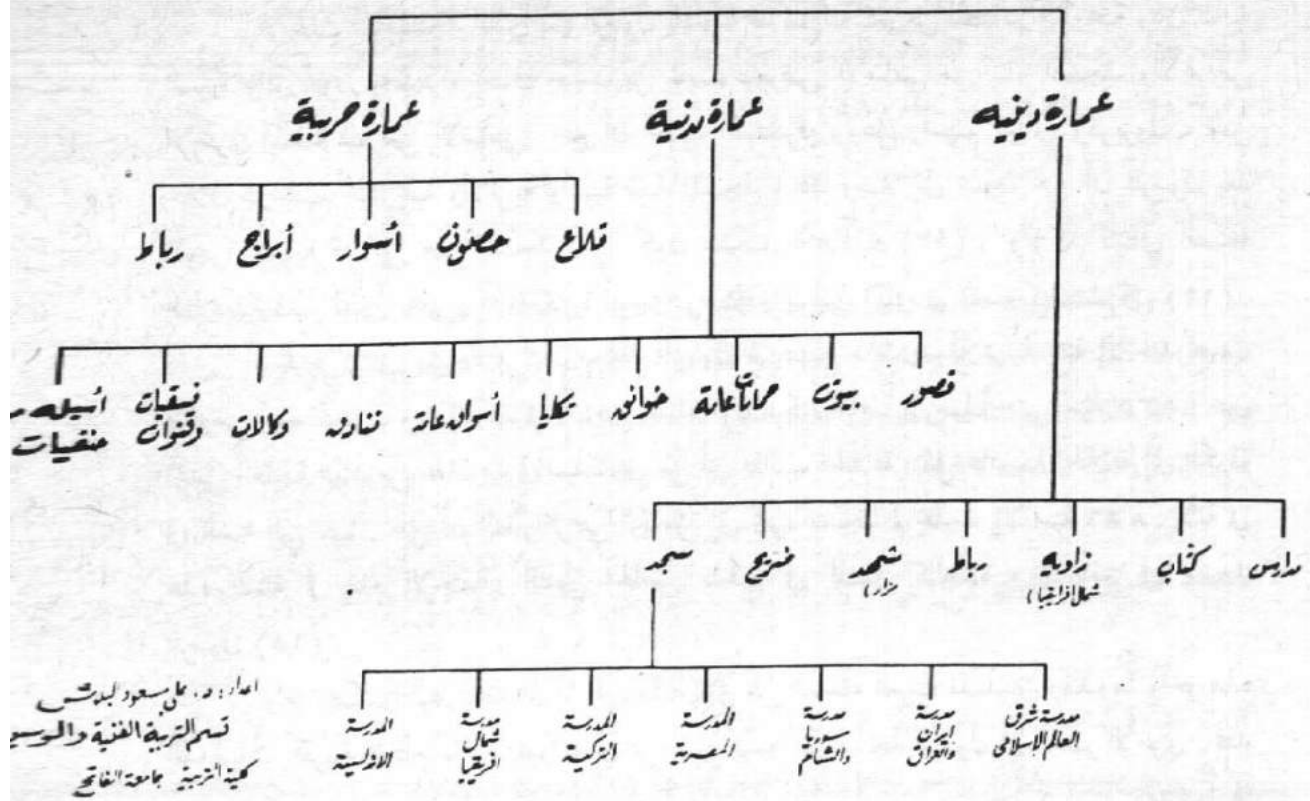 عمارة دينيه
عمارة مدنية
عمارة حربية
قلاع
حصون
أسوار
أبراج
رباط
قصور
بيوت
حمامات عامة
خوانق
تكايا
أسواق عامة
فنادق
وكالات
فسقيات
وقنوات
أسبله
حنفيات
مدارس
كتّاب
زاويه
(شمال افريقيا)
رباط
مشهد
(مزار)
ضريح
مسجد
مدرسة شرق
العالم الإسلامى
مدرسة
ايران
والعراق
مدرسة
سوريا
والشام
المدرسة
المصرية
المدرسة
التركية
مدرسة
شمال
افريقيا
المدرسة
اعداد : د. على مسعود
قسم التربية الفنية
كلية التربية جامعة الفاتح